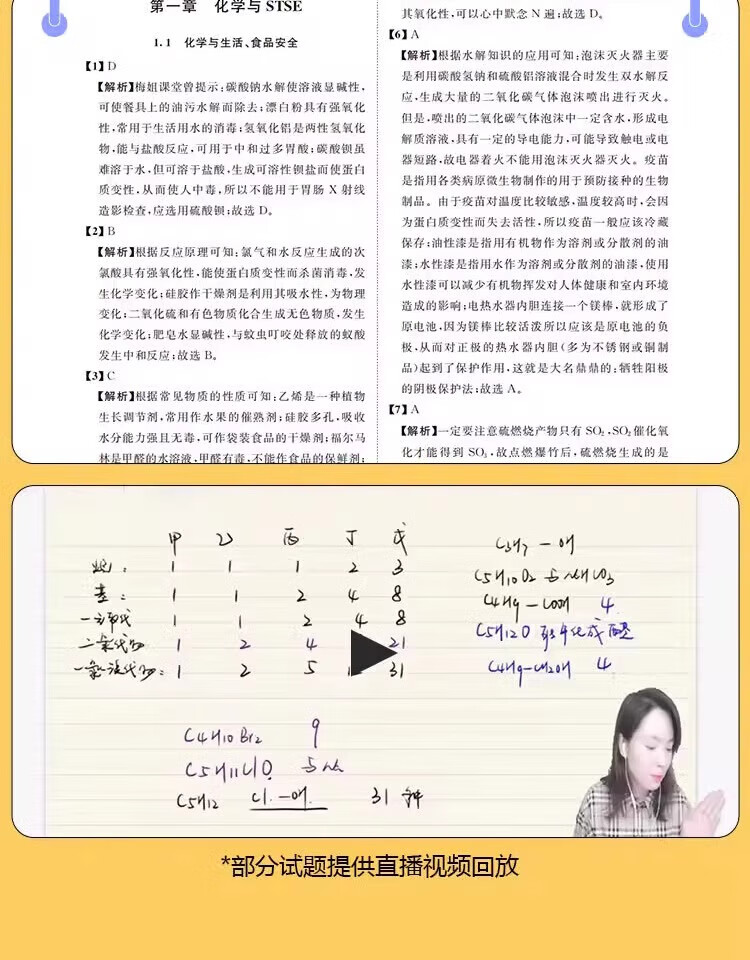 第一章 化学与STSE
1.1 化学与生活、食品安全
【1】D
【解析】梅姐课堂曾提示:碳酸钠水解使溶液显碱性,
可使餐具上的油污水解而除去;漂白粉具有强氧化
性,常用于生活用水的消毒;氢氧化铝是两性氢氧化
物,能与盐酸反应,可用于中和过多胃酸;碳酸钡虽
难溶于水,但可溶于盐酸,生成可溶性钡盐而使蛋白
质变性,从而使人中毒,所以不能用于胃肠X射线
造影检查,应选用硫酸钡;故选D。
【2】B
【解析】根据反应原理可知:氯气和水反应生成的次
氯酸具有强氧化性,能使蛋白质变性而杀菌消毒,发
生化学变化;硅胶作干燥剂是利用其吸水性,为物理
变化;二氧化硫和有色物质化合生成无色物质,发生
化学变化;肥皂水显碱性,与蚊虫叮咬处释放的蚁酸
发生中和反应;故选B。
【3】C
【解析】根据常见物质的性质可知:乙烯是一种植物
生长调节剂,常用作水果的催熟剂;硅胶多孔,吸收
水分能力强且无毒,可作袋装食品的干燥剂;福尔马
林是甲醛的水溶液,甲醛有毒,不能作食品的保鲜剂;
其氧化性,可以心中默念N遍;故选D。
【6】A
【解析】根据水解知识的应用可知:泡沫灭火器主要
是利用碳酸氢钠和硫酸铝溶液混合时发生双水解反
应,生成大量的二氧化碳气体泡沫喷出进行灭火。
但是,喷出的二氧化碳气体泡沫中一定含水,形成电
解质溶液,具有一定的导电能力,可能导致触电或电
器短路,故电器着火不能用泡沫灭火器灭火。疫苗
是指用各类病原微生物制作的用于预防接种的生物
制品。由于疫苗对温度比较敏感,温度较高时,会因
为蛋白质变性而失去活性,所以疫苗一般应该冷藏
保存;油性漆是指用有机物作为溶剂或分散剂的油
漆;水性漆是指用水作为溶剂或分散剂的油漆,使用
水性漆可以减少有机物挥发对人体健康和室内环境
造成的影响;电热水器内胆连接一个镁棒,就形成了
原电池,因为镁棒比较活泼所以应该是原电池的负
极,从而对正极的热水器内胆(多为不锈钢或铜制
品)起到了保护作用,这就是大名鼎鼎的:牺牲阳极
的阴极保护法;故选A。
【7】A
【解析】一定要注意硫燃烧产物只有SO₂,SO₂催化氧
化才能得到SO₃,故点燃爆竹后,硫燃烧生成的是
甲 乙 丙 丁 戊
烷: 1 1 1 2 3
基: 1 1 2 4 8
一卤代 1 1 2 4 8
二氯代物 1 2 4 21
1 2 5 31
C₃H₇—OH
C₅H₁₀O₂ 与NaHCO₃
C₄H₉—COOH 4
C₅H₁₂O 醛
C₄H₉—CH₂OH 4
C₄H₁₀Br₂ 9
C₅H₁₁ClO 与Na
C₅H₁₂ Cl. —OH. 31种
*部分试题提供直播视频回放